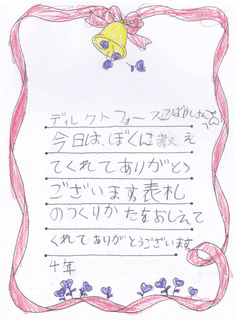 ディレクトフォース
今日は、ぼくに教え
てくれてありがとう
ございます。表札
のつくりかたをおしえて
くれてありがとうございます。
4年